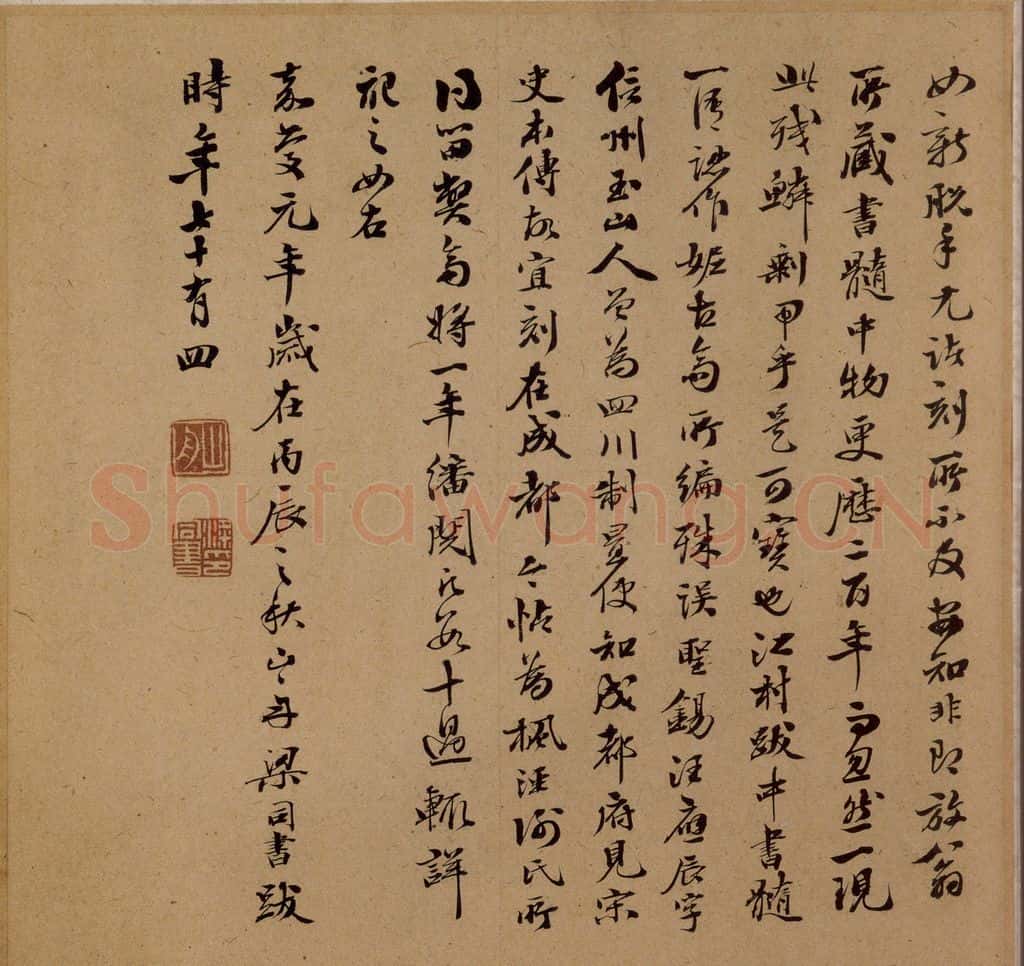 如新脫手尤諸刻所不及安知非即放翁
所藏書髓中物更歷二百年而忽然一現
此殘鱗剩甲乎是可寶也江村跋中書髓
一僞作妬古齋所編殊誤聖錫汪應辰字
信州玉山人曾為四川制置使知成都府見宋
史本傳故宜刻在成都今帖為楓涇謝氏所
得留契齋將一年繙閱凡數十過輒詳
記之如右
嘉慶元年歲在丙辰之秋山舟梁同書跋
時年七十有四
山舟
梁同書印
Shufawang.CN